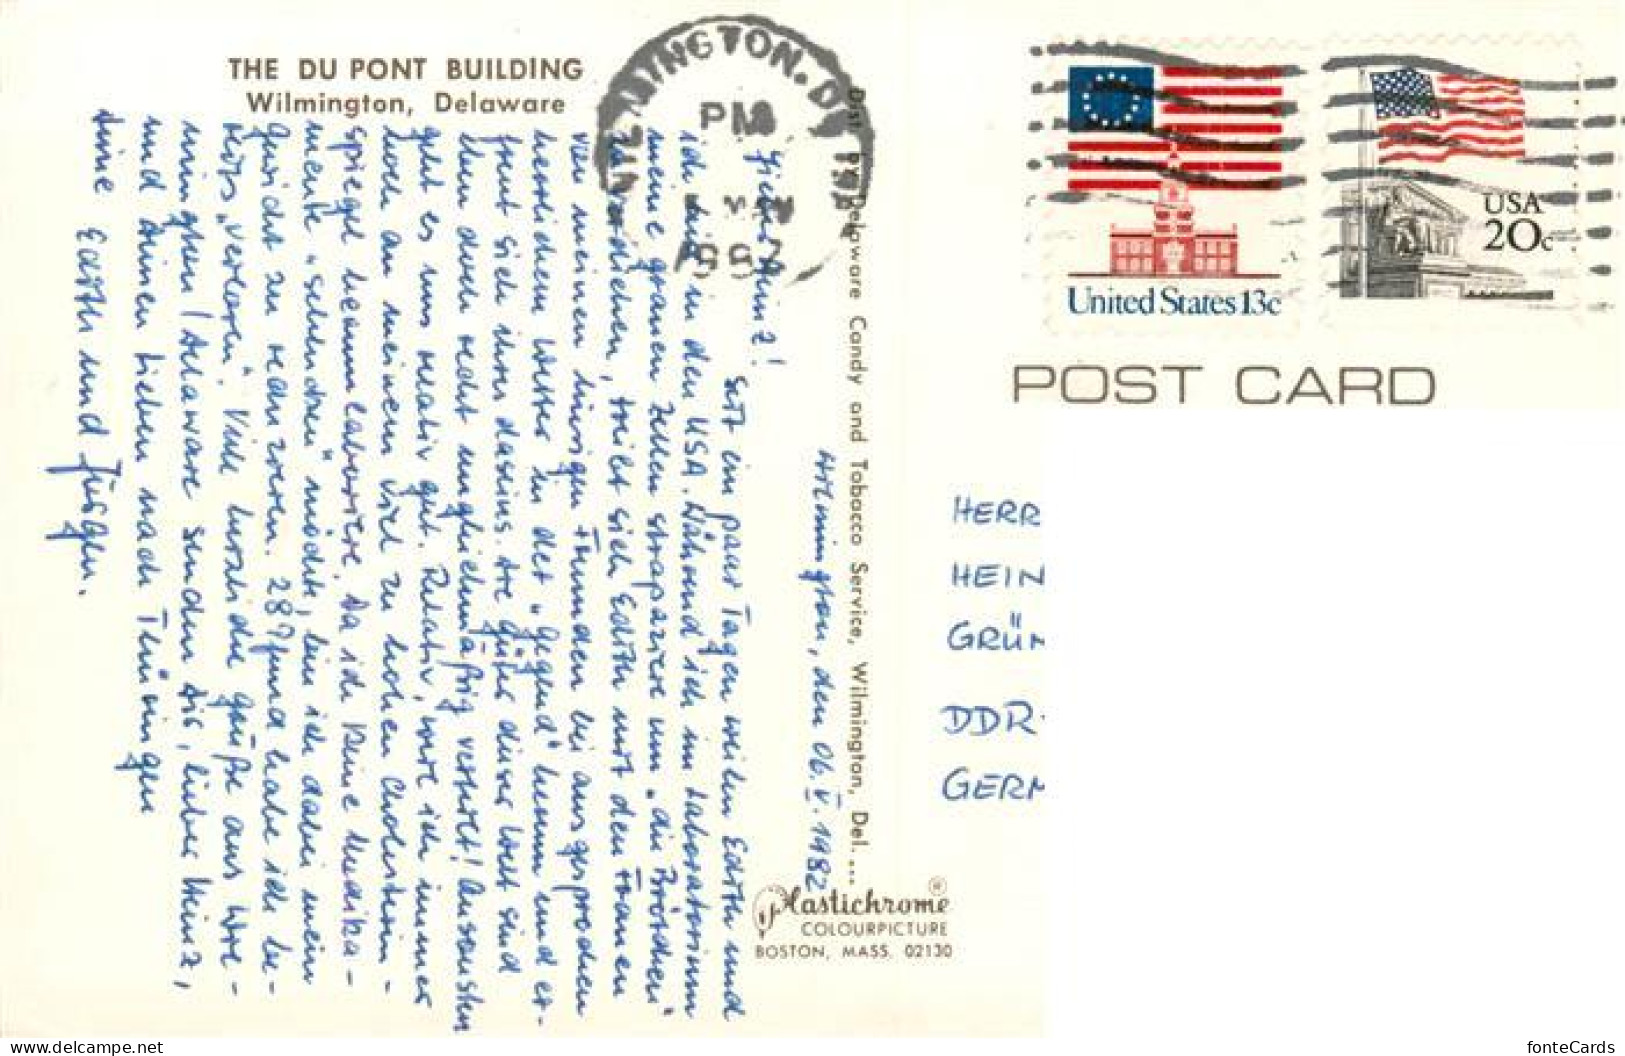 THE DU PONT BUILDING
Wilmington, Delaware
Wilmington, den 06.V.1982
Lieber Heinz!
Seit ein paar Tagen weilen Edith und
ich hier in den USA. Während ich im Laboratorium
meine grauen Zellen strapaziere um "die Brötchen"
zu verdienen, treibt sich Edith mit den Frauen
von meinen hiesigen Freunden bei ausgesprochen
herrlichem Wetter in der "Gegend" herum und er-
freut sich ihres Daseins. Die Güter dieser Welt sind
eben doch recht ungleichmäßig verteilt! Ansonsten
geht es uns relativ gut. Relativ, weil ich immer
noch an meinem viel zu hohen Cholesterin-
spiegel herumlaboriere. Da ich keine Medika-
mente "schlucken" möchte, bin ich dabei mein
Gewicht zu reduzieren. 28 Pfund habe ich be-
reits "verloren". Viele herzliche Grüße aus Wil-
mington / Delaware senden Dir, lieber Heinz,
und Deinen Lieben nach Thüringen
Deine Edith und Jürgen.
MINGTON, D
PM
MAY
1982
Dist. by Delaware Candy and Tobacco Service, Wilmington, Del. ...
Plastichrome ®
COLOURPICTURE
BOSTON, MASS. 02130
United States 13c
USA
20c
POST CARD
HERR
HEIN
GRÜN
DDR-
GERM
delcampe.net
fonteCards